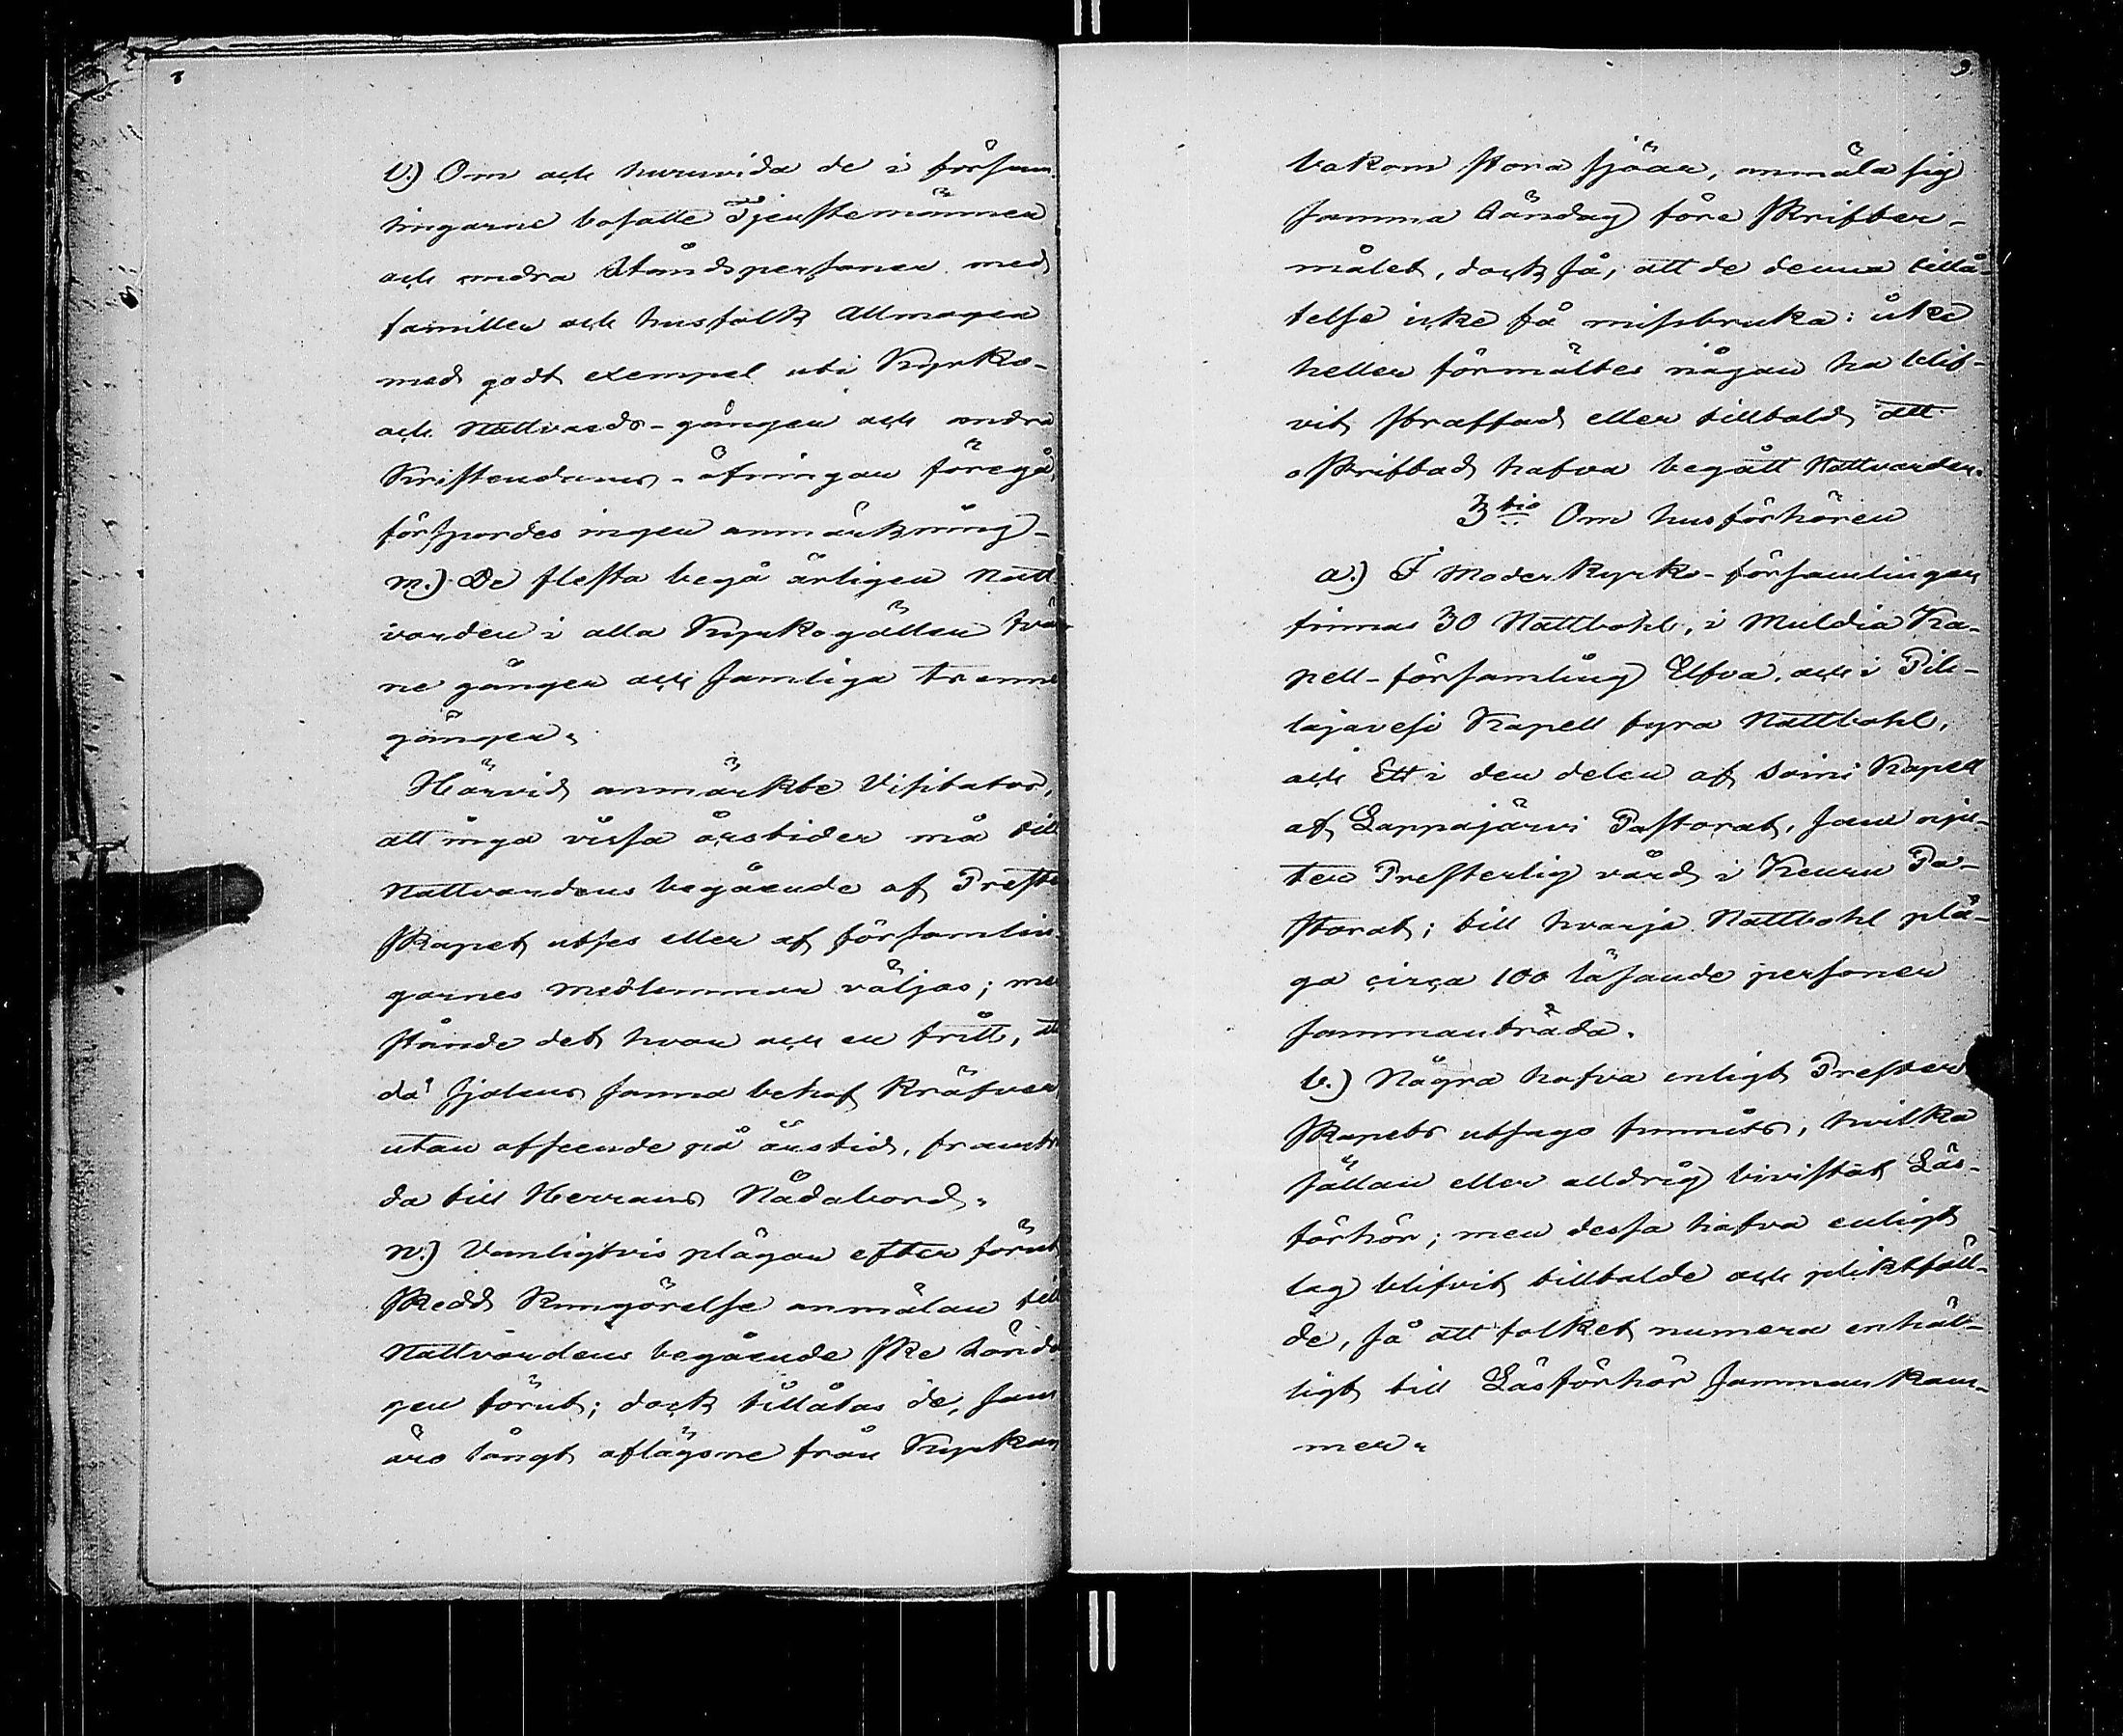 8
l.) Om och huruvida de i försam-
lingarne bosatte Tjenstemännen
och andra Ståndspersoner med
familler och husfolk Allmogen
med godt exempel uti Kyrko-
och Nattvards-gången och andra
Kristendoms-öfningar föregå,
förspordes ingen anmärkning-
m.) De flesta begå årligen Natt
varden i alla Kyrkogällen tvän
ne gånger och somliga trenne
gånger.
Härvid anmärkte Visitator,
att inga vissa årstider må till
Nattvardens begående af Preste
skapet utses eller af församlin-
garnes medlemmar väljas; me
stånde det hvar och en fritt, att
då själens sanna behof kräfver
utan afseende på årstid, framträ
da till Herrans Nådabord.
n.) Vanligtvis plägar efter förut
skedd kungörelse anmälan till
Nattvardens begående ske Lörda
gen förut; dock tillåtas de, som
äro långt aflägsne från Kyrkan
9
bakom stora sjöar, anmäla sig
samma Söndag före skrifter-
målet, dock så, att de denna tillå-
telse icke få missbruka: icke
heller förmältes någon ha blif-
vit straffad eller tilltald att
oskriftad hafva begått Nattvarden.
3tio Om husförhören
a.) I Moderkyrko-församlingen
finnas 30 Nattbohl, i Muldia Ka-
pell-församling Elfva, och i Pih-
lajavesi Kapell fyra Nattbohl,
och Ett i den delen af Soini Kapell
af Lappajärvi Pastorat, som nju-
ter Presterlig vård i Keuru Pa-
storat; till hvarje Nattbohl plä-
ga circa 100 läsande personer
sammanträda.
b.) Några hafva enligt Prester
skapets utsago funnits, hvilka
sällan eller alldrig bivistat Läs-
förhör; men dessa hafva enligt
lag blifvit tilltalde och pliktfäll-
de, så att folket numera enhäl-
ligt till Läsförhör samman kom-
mer.